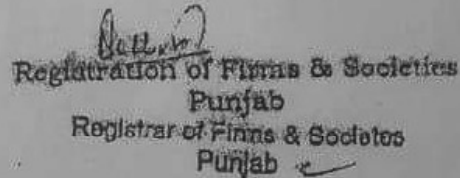 Registration of Firms & Societies
Punjab
Registrar of Firms & Societes
Punjab